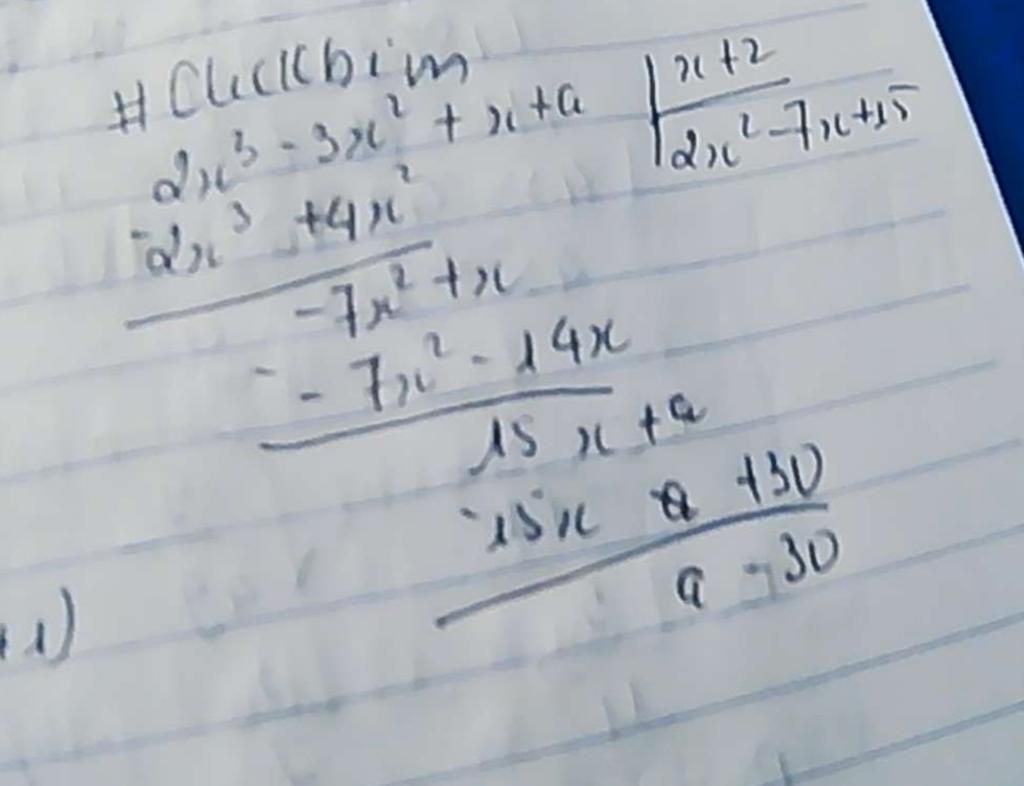 #Clickbim
2x³ - 3x² + x + a | x + 2
2x² - 7x + 15
-2x³ + 4x²
-7x² + x
- - 7x² - 14x
15x + a
-15x +30
a - 30
1)